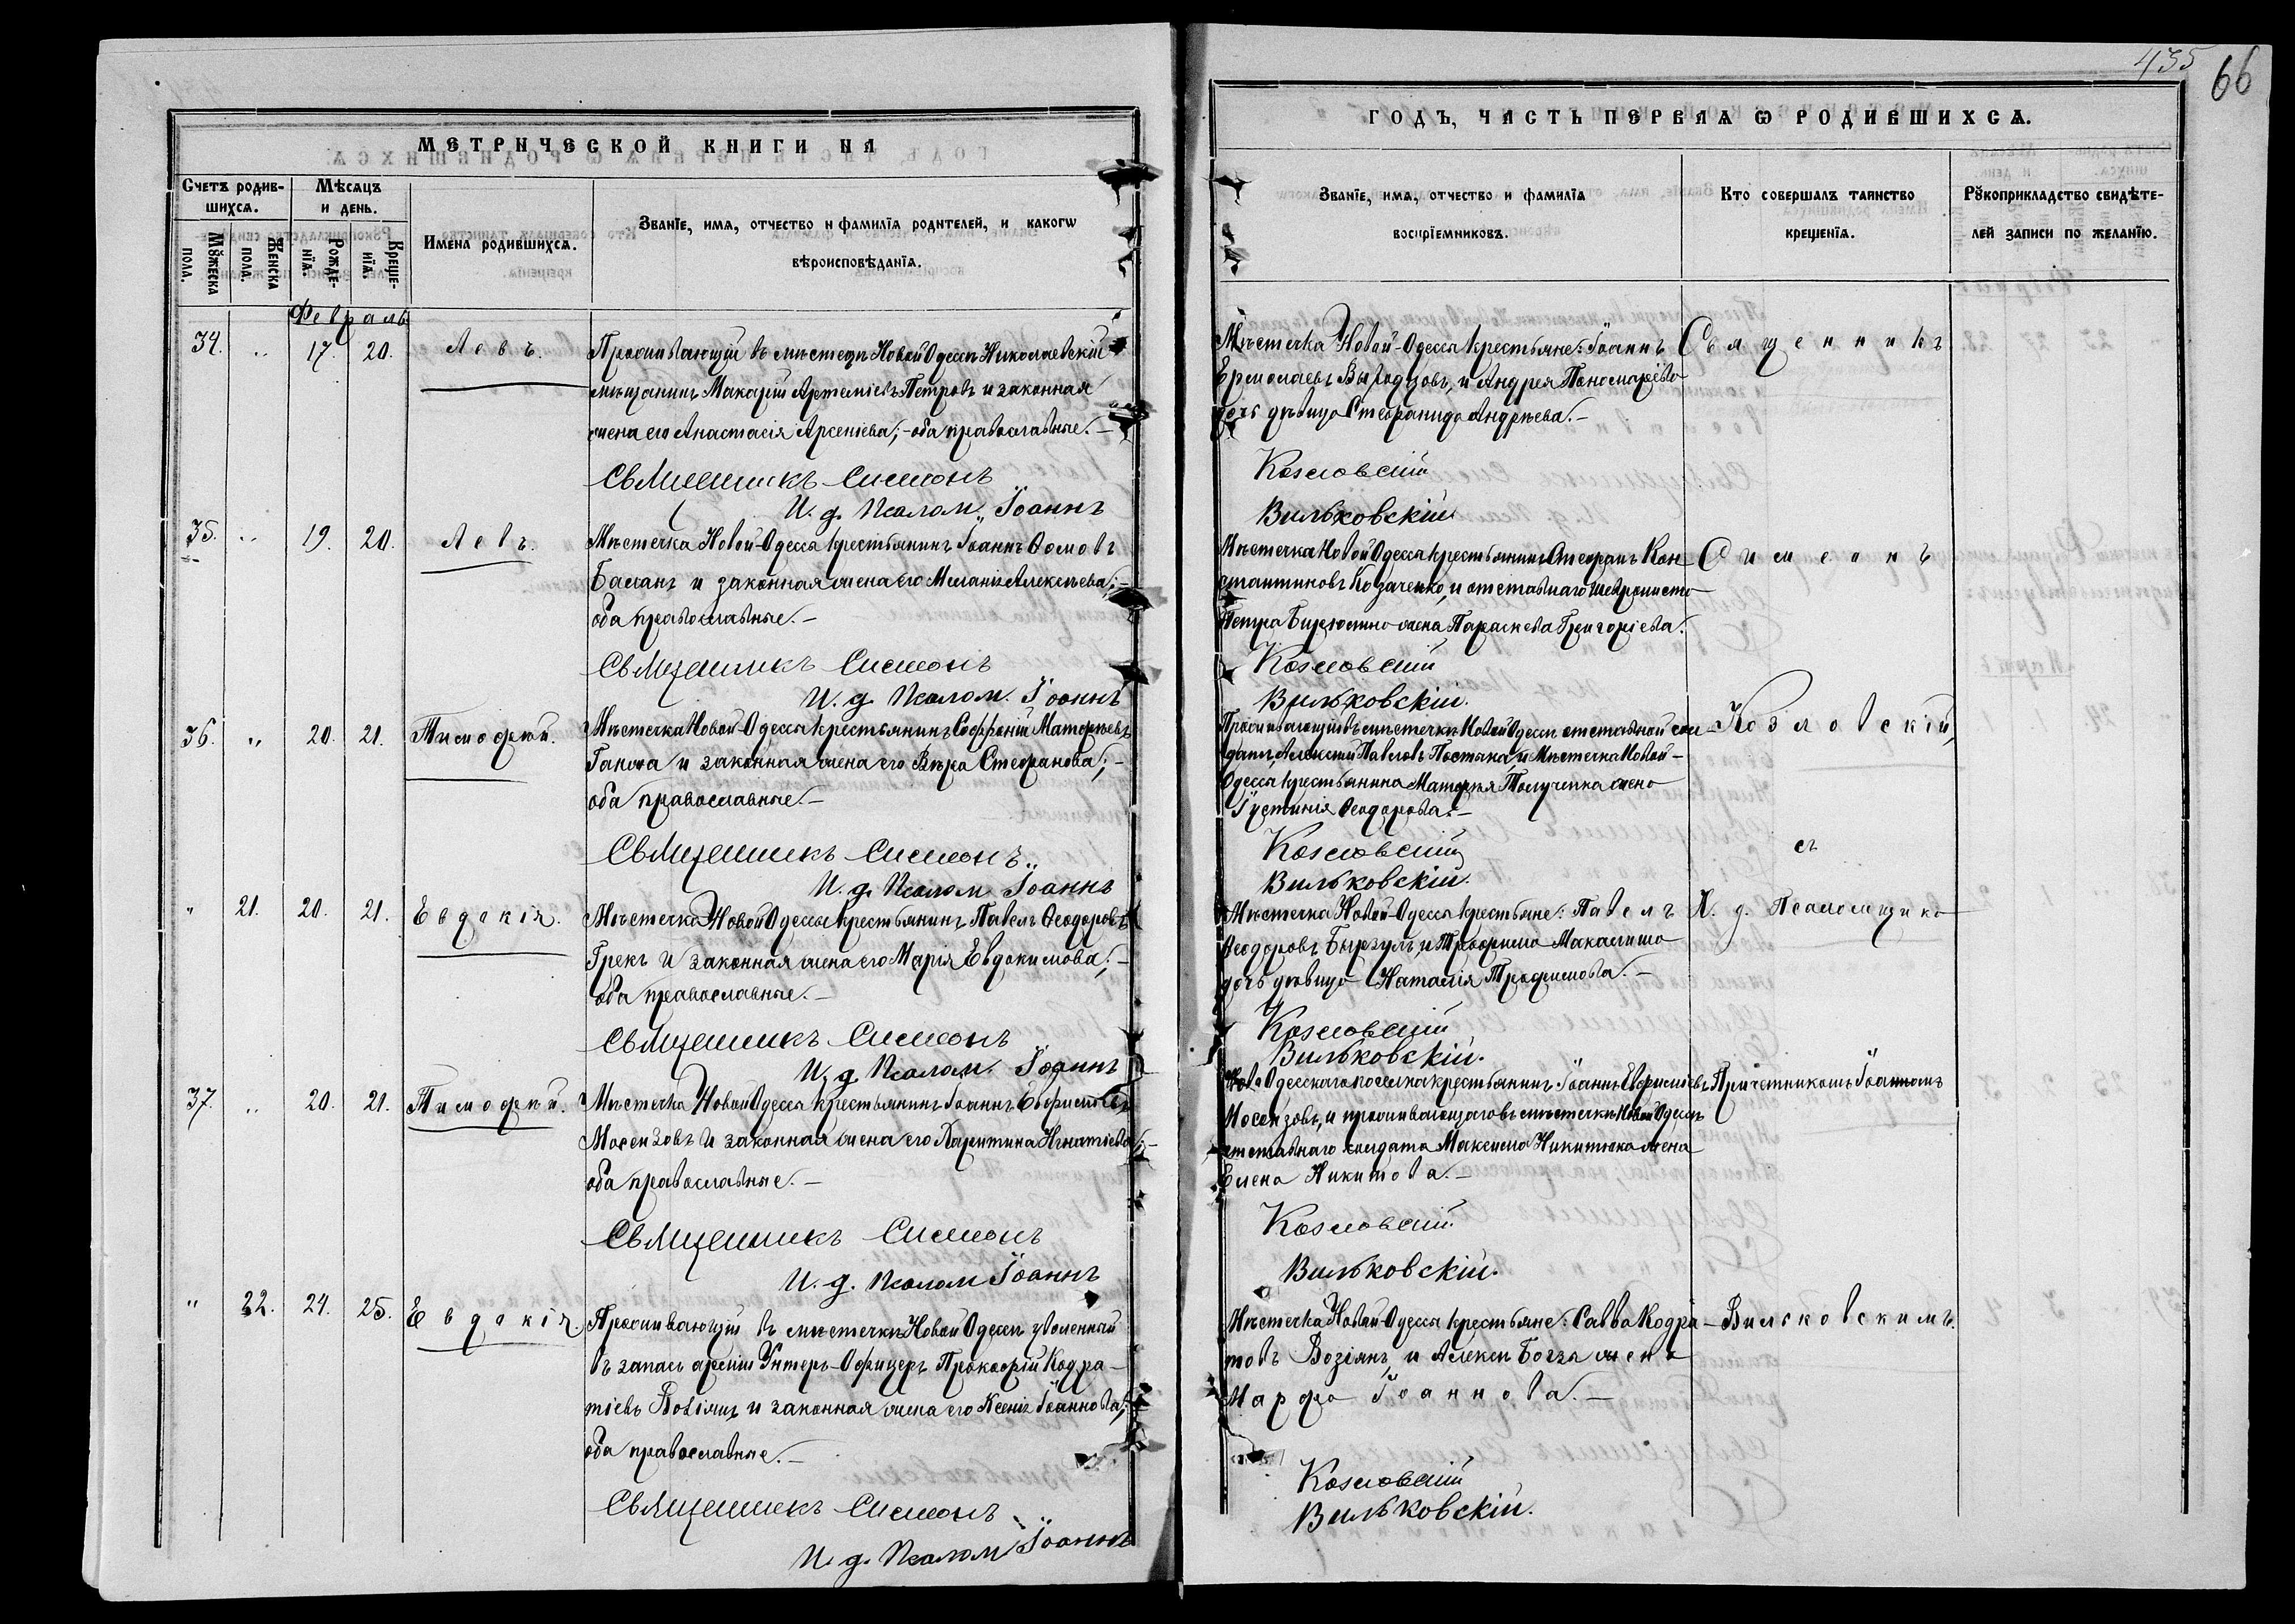 МЕТРИЧЕСКОЙ КНИГИ НА
Счетъ родив-
шихсѧ.
Мꙋжеска
пола.
Женска
пола.
Мѣсѧцъ
и день.
Рожде-
нїѧ.
Креще-
нїѧ.
Имена родившихсѧ.
Званїе, имѧ, отчество и фамилїѧ родителей, и какогѡ
вѣроисповѣданїѧ.
Февраль
34. „ 17. 20. Левъ.
Проживающій въ мѣстечкѣ Новой Одессѣ Николаевскій
мѣщанинъ Макарій Артеміевъ Петровъ и законная
жена его Анастасія Арсеніева; - оба православные. -
Священникъ Симеонъ
И. д. Псалом. Іоаннъ
35. „ 19. 20. Левъ.
Мѣстечка Новой-Одессы крестьянинъ Іоаннъ Ѳомовъ
Баланъ и законная жена его Меланія Алексѣева; -
оба православные. -
Священникъ Симеонъ
И. д. Псалом. Іоаннъ
36. „ 20. 21. Тимофей.
Мѣстечка Новой-Одессы крестьянинъ Софроній Матфѣевъ
и законная жена его Вѣра Стефанова; -
оба православные. -
Священникъ Симеонъ
И. д. Псалом. Іоаннъ
„ 21. 20. 21. Евдокія.
Мѣстечка Новой Одессы крестьянинъ Павелъ Ѳеодоровъ
Грекъ и законная жена его Марія Евдокимова; -
оба православные. -
Священникъ Симеонъ
И. д. Псалом. Іоаннъ
37. „ 20. 21. Тимофей.
Мѣстечка Новой Одессы крестьянинъ Іоаннъ Евфиміевъ
Мосензовъ и законная жена его Харитина Игнатіева; -
оба православные. -
Священникъ Симеонъ
И. д. Псалом Іоаннъ
„ 22. 24. 25. Евдокія.
Проживающій въ мѣстечкѣ Новой Одессѣ уволенный
въ запасъ арміи Унтеръ-Офицеръ Прокофій Кодра-
тіевъ Возіянъ и законная жена его Ксенія Іоаннова; -
оба православные. -
Священникъ Симеонъ
И. д. Псалом Іоаннъ
435
66
ГОДЪ, ЧАСТЬ ПЕРВАѦ Ѡ РОДИВШИХСѦ.
Званїе, имѧ, отчество и фамилїѧ
воспрїемниковъ.
Кто совершалъ таинство
крещенїѧ.
Рꙋкоприкладство свидѣте-
лей записи по желанїю.
Мѣстечка Новой-Одессы крестьяне: Іоаннъ
Ермолаевъ и Андрея Пономарева
дочь дѣвица Стефанида Андрѣева. -
Козловскій
Вильковскій
Священникъ
Мѣстечка Новой Одессы крестьянинъ Стефанъ Кон-
стантиновъ Козаченко, и отставнаго
Петра жена Параскева Григоріева.
Козловскій
Вильковскій.
Симеонъ
Проживающій въ мѣстечкѣ Новой Одессѣ отставной сол-
датъ Алексѣй Павловъ и Мѣстечка Новой-
Одессы крестьянина Матфѣя жена
Іустинія Ѳеодорова. -
Козловскій
Вильковскій.
Козловскій,
съ
Мѣстечка Новой-Одессы крестьяне: Павелъ
Ѳеодоровъ Бырзулъ, и Трофима
дочь дѣвица Наталія Трофимова. -
Козловскій
Вильковскій.
И. д. Псаломщика
Ново Одесскаго поселка крестьянинъ Іоаннъ Евфиміевъ
Мосензовъ, и проживающаго въ мѣстечкѣ Новой Одессѣ
отставнаго солдата Максима Никитюка жена
Елена Никитова. -
Козловскій.
Вильковскій.
Причетникомъ Іоанномъ
Мѣстечка Новой-Одессы крестьяне: Савва Кодра-
товъ Возіянъ, и Алексѣя жена
Марфа Іоаннова. -
Козловскій
Вильковскій.
Вильковскимъ.